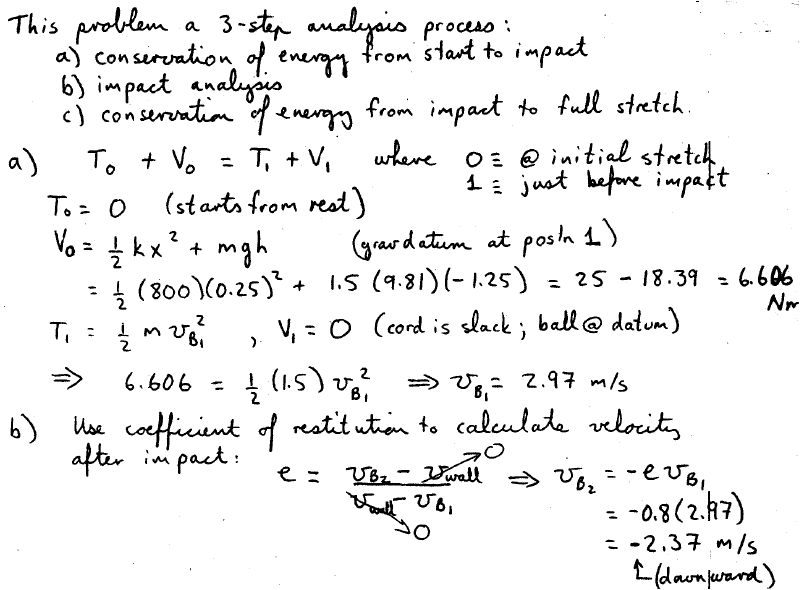 This problem a 3-step analysis process:
a) conservation of energy from start to impact
b) impact analysis
c) conservation of energy from impact to full stretch.
a) T₀ + V₀ = T₁ + V₁ where 0 ≡ @ initial stretch
1 ≡ just before impact
T₀ = 0 (starts from rest)
V₀ = ½ kx² + mgh (grav datum at pos'n 1)
= ½ (800)(0.25)² + 1.5 (9.81)(-1.25) = 25 - 18.39 = 6.606 Nm
T₁ = ½ m v_B₁² , V₁ = 0 (cord is slack; ball @ datum)
⇒ 6.606 = ½ (1.5) v_B₁² ⇒ v_B₁ = 2.97 m/s
b) Use coefficient of restitution to calculate velocity
after impact: e = (v_B₂ - v_wall→0) / (v_wall→0 - v_B₁) ⇒ v_B₂ = -e v_B₁
= -0.8(2.97)
= -2.37 m/s
↑(downward)